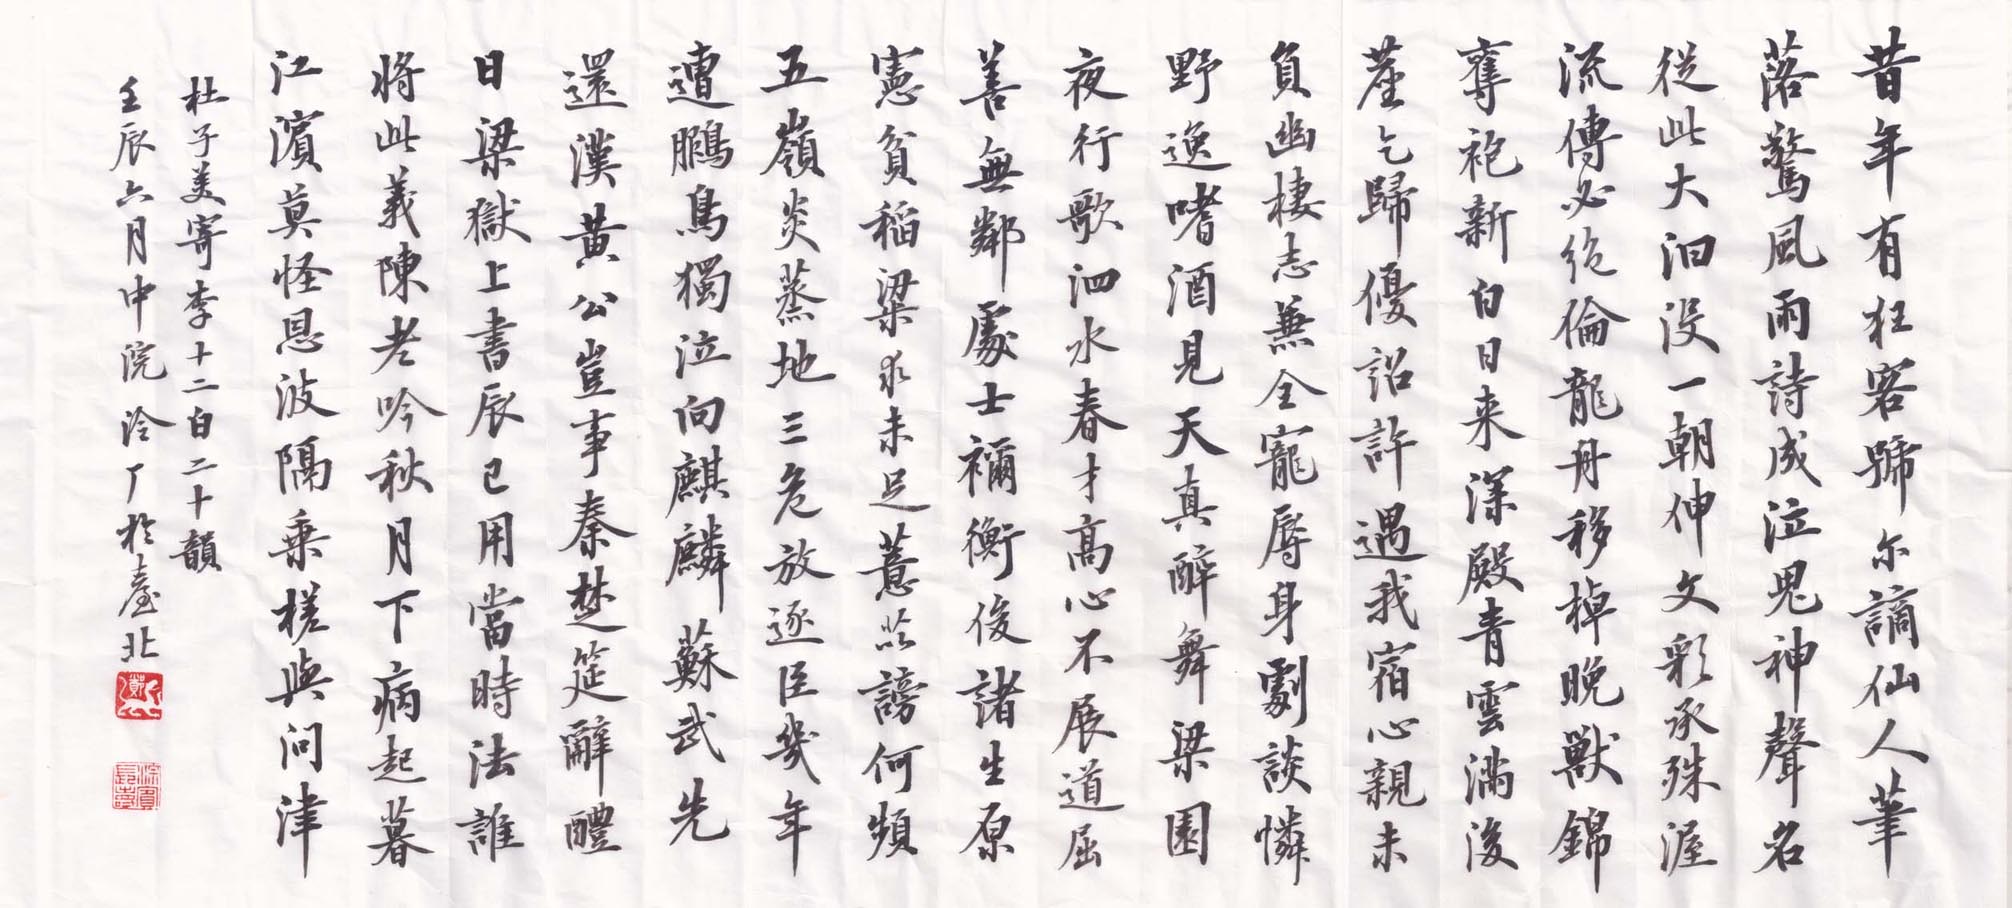 昔年有狂客號尔謫仙人筆
落驚風雨詩成泣鬼神聲名
從此大汩没一朝伸文彩承殊渥
流傳必絶倫龍舟移棹晚獸錦
奪袍新白日来深殿青雲滿後
塵乞歸優詔許遇我宿心親未
負幽棲志兼全寵辱身劇談憐
野逸嗜酒見天真醉舞梁園
夜行歌泗水春才高心不展道屈
善無鄰處士禰衡俊諸生原
憲貧稻粱求未足薏苡謗何頻
五嶺炎蒸地三危放逐臣幾年
遭鵩鳥獨泣向麒麟蘇武先
還漢黃公豈事秦楚筵辭醴
日梁獄上書辰已用當時法誰
將此義陳老吟秋月下病起暮
江濱莫怪恩波隔乘槎與問津
杜子美寄李十二白二十韻
壬辰六月中浣泠丁於臺北